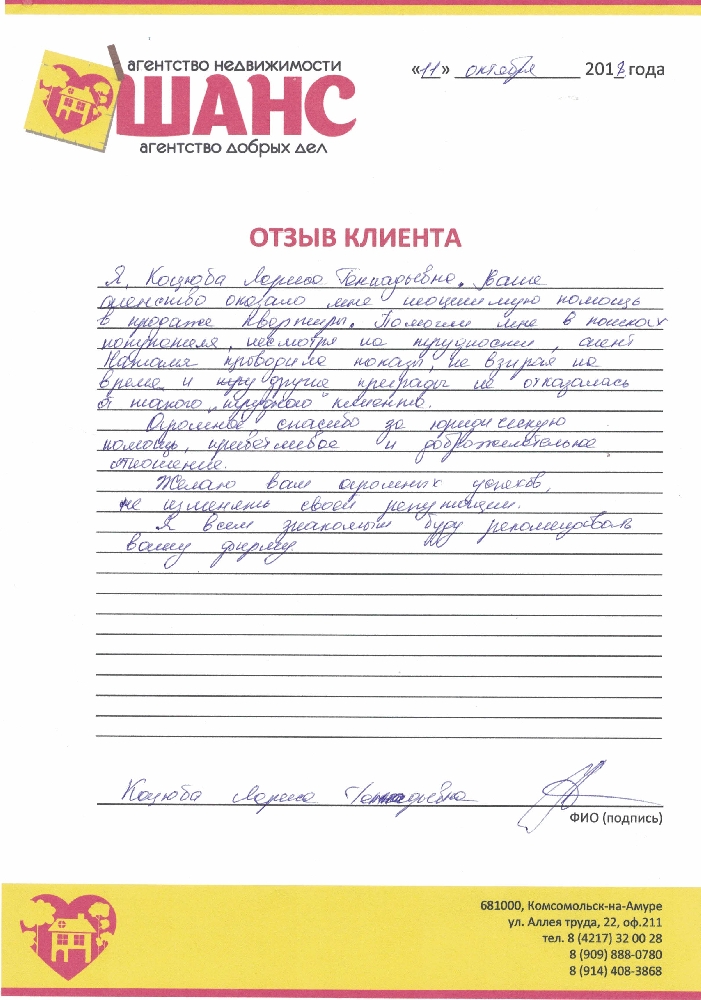 агентство недвижимости
ШАНС
агентство добрых дел
«11» октября 2017 года
ОТЗЫВ КЛИЕНТА
Я, Коцюба Лариса Геннадьевна. Ваше
агенство оказало мне неоценимую помощь
в продаже квартиры. Помогли мне в поисках
покупателя, несмотря на трудности, агент
Наталия проводила показы, не взирая на
время и другие преграды не отказалась
от такого "трудного" клиента.
Огромное спасибо за юридическую
помощь, приветливое и доброжелательное
отношение.
Желаю вам огромных успехов,
не изменять своей репутации.
Я всем знакомым буду рекомендовать
вашу фирму.
Коцюба Лариса Геннадьевна
ФИО (подпись)
681000, Комсомольск-на-Амуре
ул. Аллея труда, 22, оф.211
тел. 8 (4217) 32 00 28
8 (909) 888-0780
8 (914) 408-3868